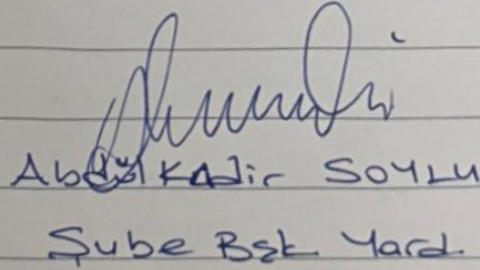 Abdülkadir SOYLU
Şube Bşk Yard.